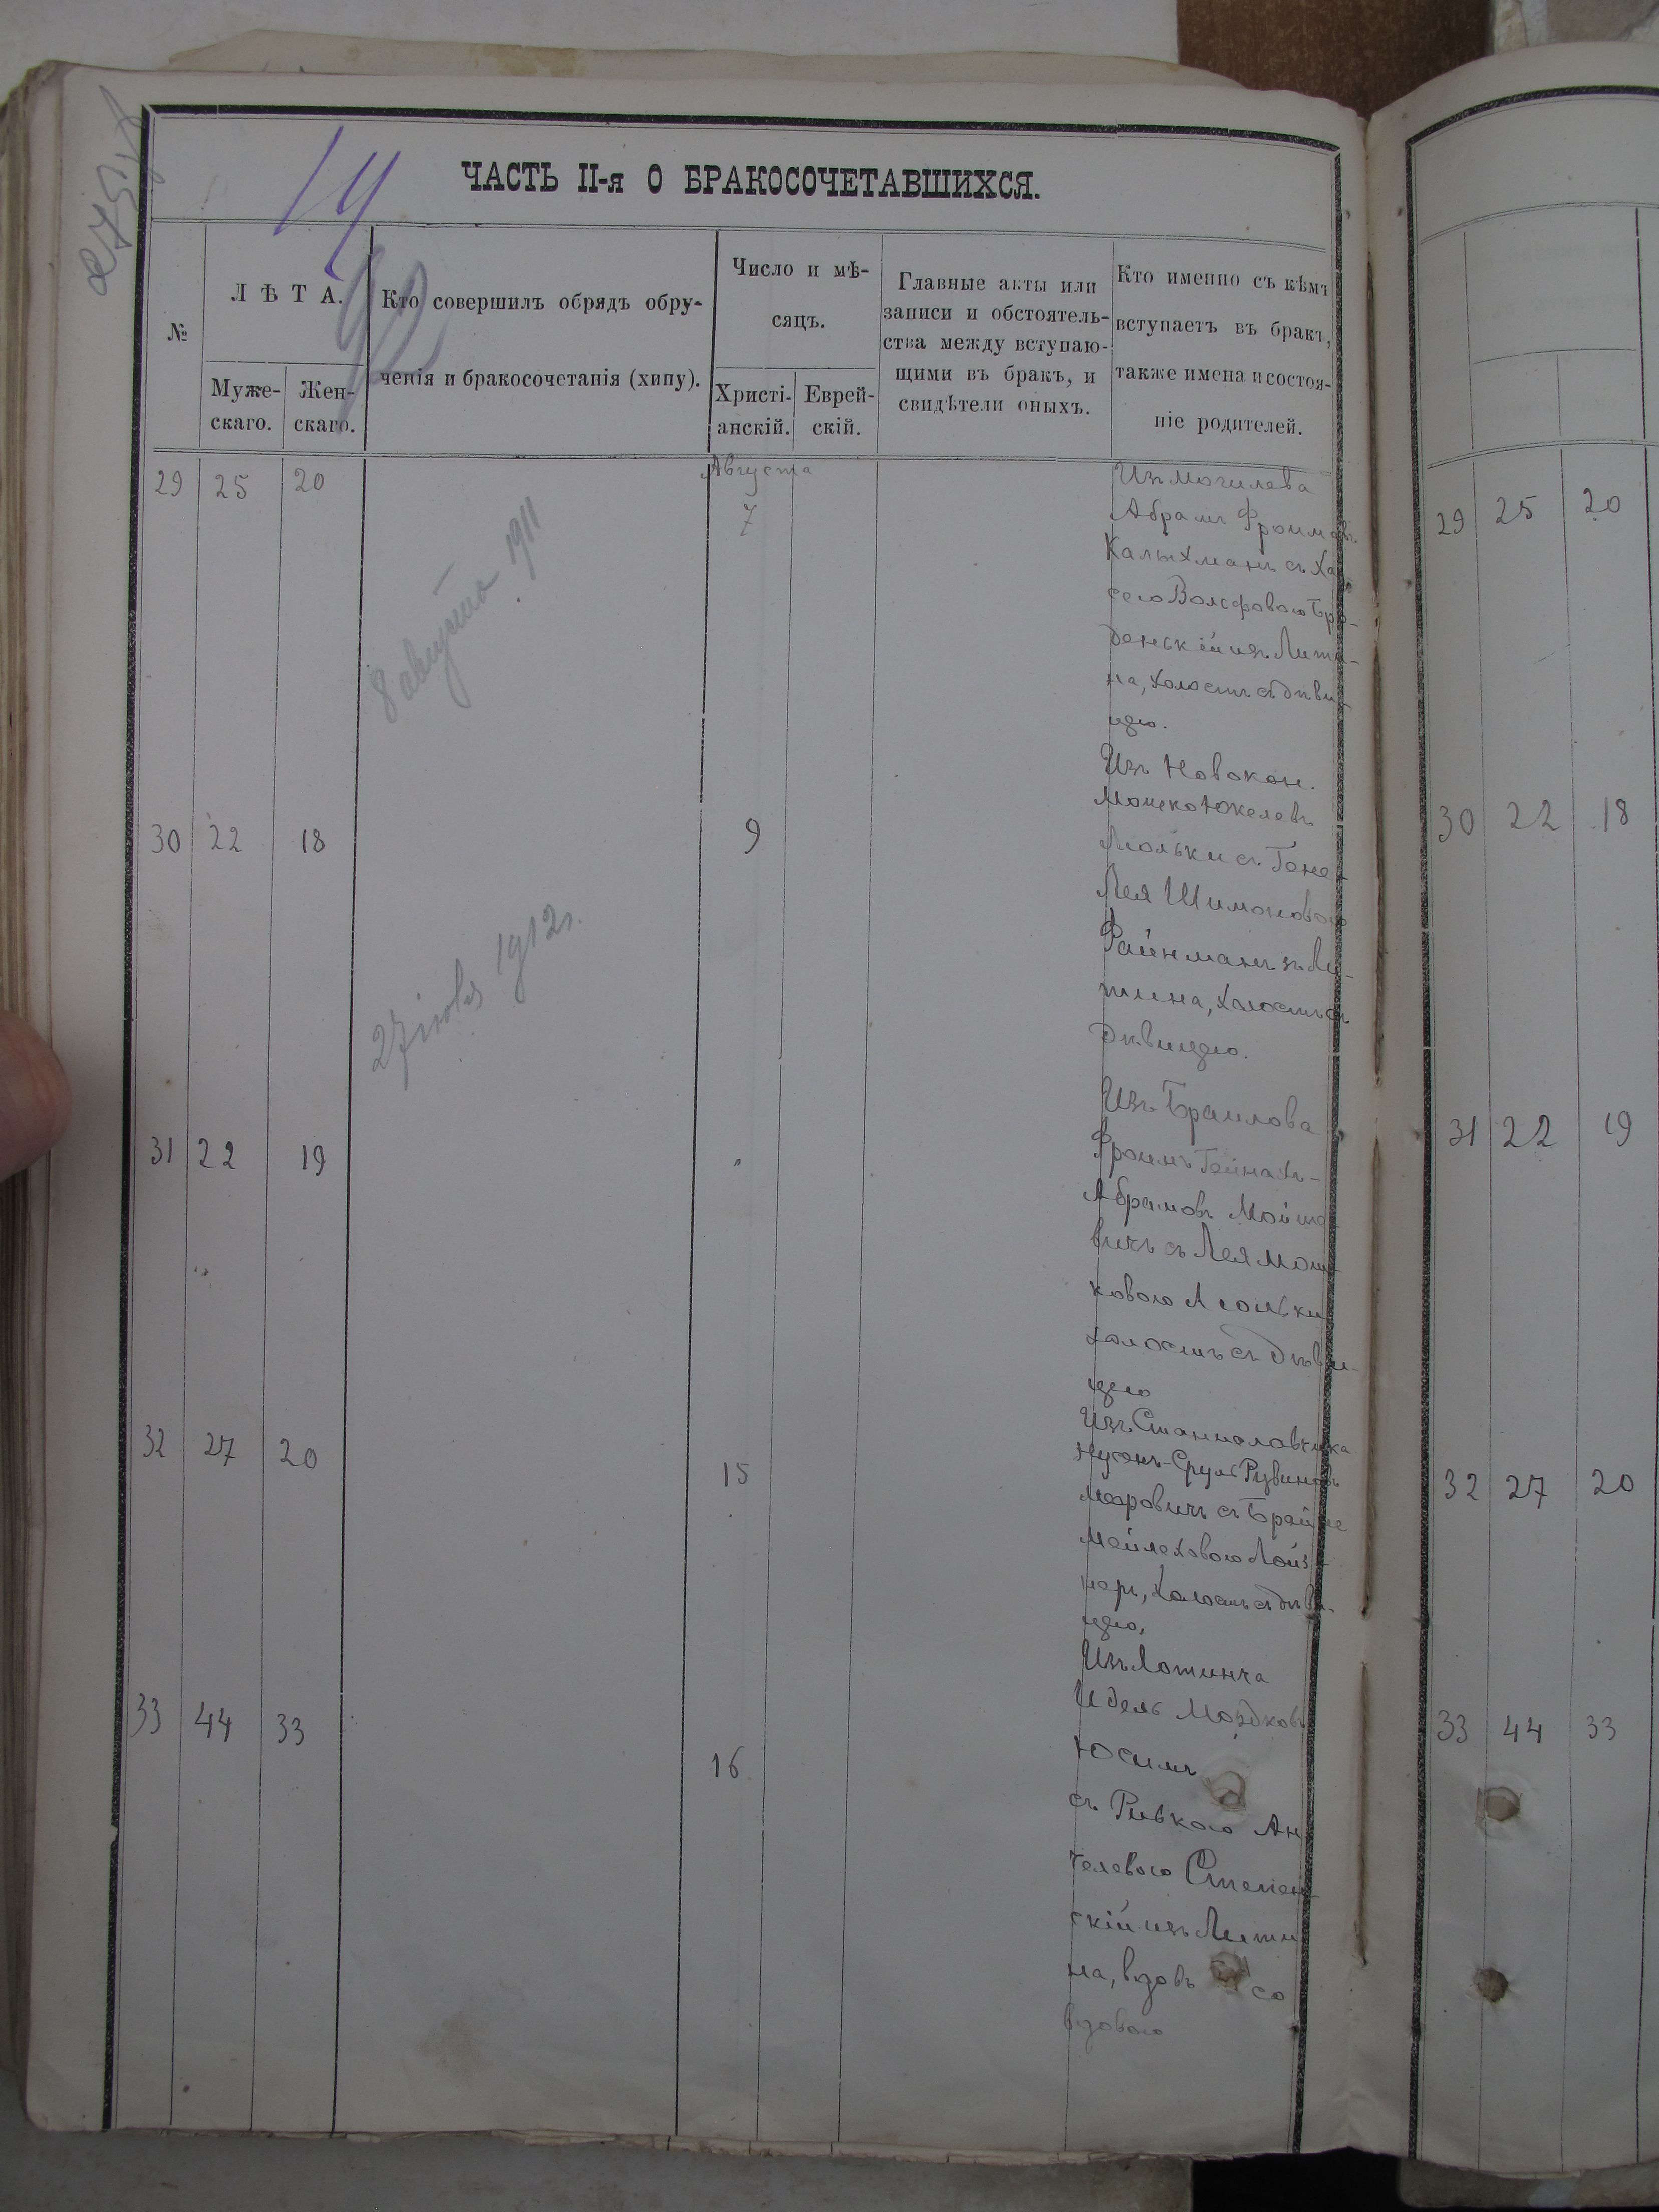 ЧАСТЬ II-я О БРАКОСОЧЕТАВШИХСЯ.
14
№
ЛѢТА.
Муже-
скаго.
Жен-
скаго.
Кто совершилъ обрядъ обру-
ченія и бракосочетанія (хипу).
Число и мѣ-
сяцъ.
Христі-
анскій.
Еврей-
скій.
Главные акты или
записи и обстоятель-
ства между вступаю-
щими въ бракъ, и
свидѣтели оныхъ.
Кто именно съ кѣмъ
вступаетъ въ бракъ,
также имена и состоя-
ніе родителей.
29 25 20
Августа
7
8 августа 1911
Изъ Могилева
Абрамъ Фроимовъ
Калыхманъ съ Хай-
сею Волфовою Бро-
денькій изъ Лити-
на, холостъ съ дѣви-
цею.
30 22 18
9
27 іюля 1912 г.
Изъ Новокон.
Мошко Юкелевъ
съ Гене-
Лея Шимоновою
Файнманъ зъ Ли-
тина, холостъ съ
дѣвицею.
31 22 19
"
Изъ Браилова
Фроимъ Гейнахъ-
Абрамовъ Мойшо-
вичъ съ Лея Мош-
ковою
холостъ съ дѣви-
цею
32 27 20
15
Изъ Станиславчика
Нусонъ-Сруль Рувиновъ
Меровичъ съ Брайне
Мейлеховою Лойз-
неръ, холостъ съ дѣви-
цею,
33 44 33
16
Изъ Хотинча
Идель Мордковъ
Юсимъ
съ Ривкою Ан-
челевою Степен-
скій изъ Лити-
на, вдовъ со
вдовою
29 25 20
30 22 18
31 22 19
32 27 20
33 44 33